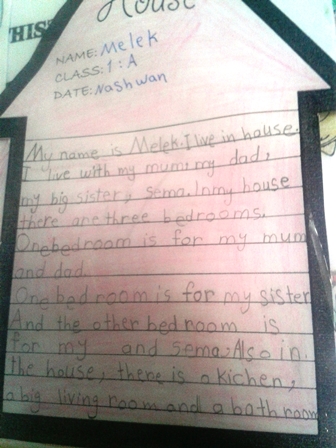 House
THIS
NAME: Melek
CLASS: 1 : A
DATE: Nashwan
My name is Melek. I live in hause.
I live with my mum, my dad,
my big sister, sema. In my house
there are three bedrooms.
One bedroom is for my mum
and dad.
One bed room is for my sister
And the other bed room is
for my and sema. Also in
the house, there is a kichen,
a big living room and a bath room